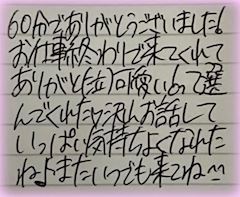 60分でありがとうございました!
お仕事終わりで来てくれて
ありがと(泣)可愛いって選
んでくれたり沢山お話して
いっぱい気持ちよくなれた
ね♪またいつでも来てね^^